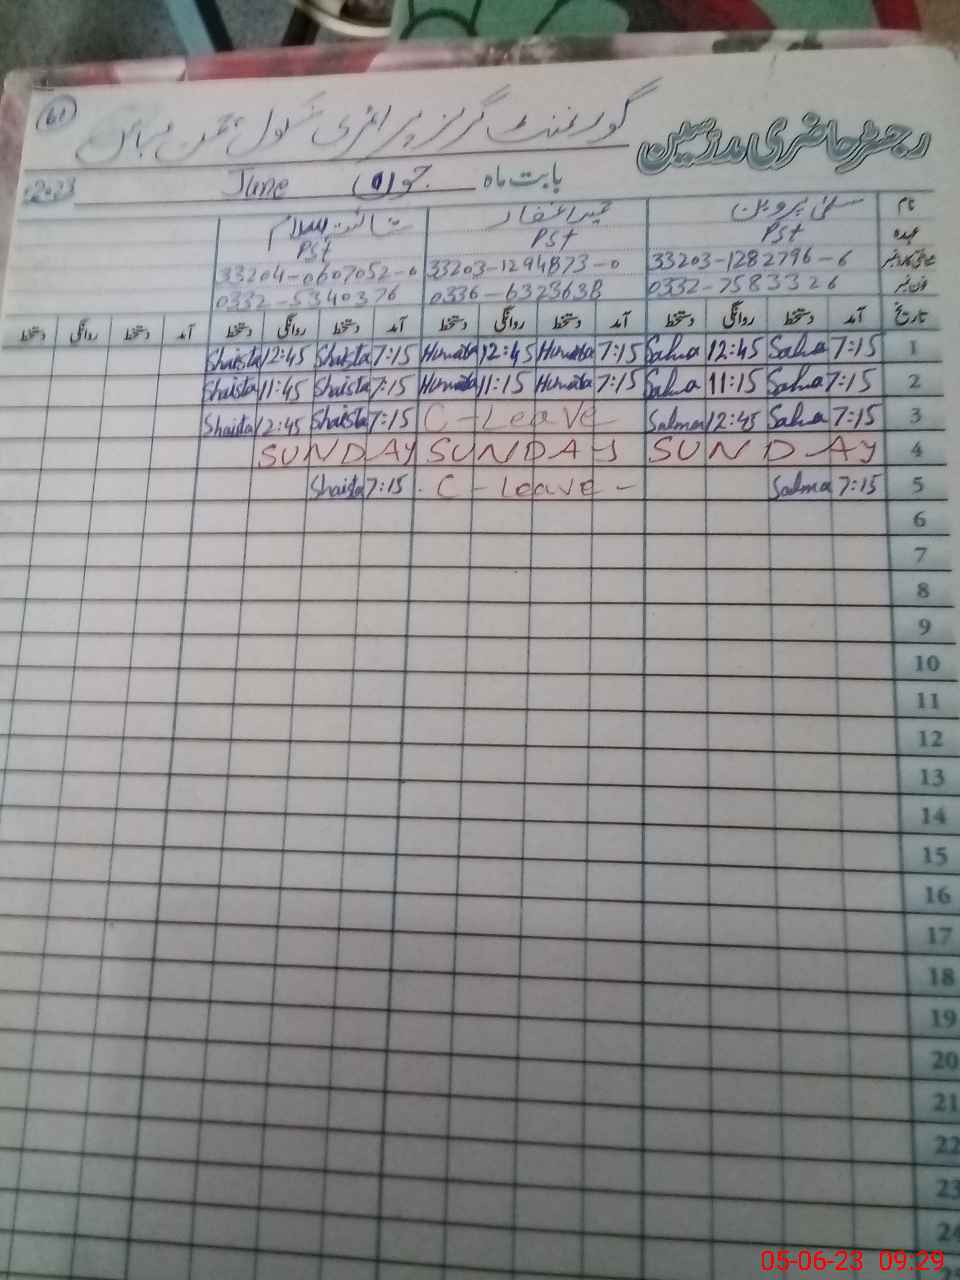 61
رجسٹر حاضری مدرسین گورنمنٹ گرلز پرائمری سکول
بابت ماہ جون June 2023
نام سلمیٰ پروین حمیرا غفار شائستہ اسلام
عہدہ PSt PSt PSt
33203-1282796-6 33203-1294873-0 33204-0607052-0
فون نمبر 0332-7583326 0336-6323638 0332-5340376
تاریخ آمد دستخط روانگی دستخط آمد دستخط روانگی دستخط آمد دستخط روانگی دستخط آمد دستخط روانگی دستخط
1 7:15 Salma 12:45 Salma 7:15 Humaira 12:45 Humaira 7:15 Shaista 12:45 Shaista
2 7:15 Salma 11:15 Salma 7:15 Humaira 11:15 Humaira 7:15 Shaista 11:45 Shaista
3 7:15 Salma 12:45 Salma C-Leave 7:15 Shaista 12:45 Shaista
4 SUNDAY SUNDAY SUNDAY
5 7:15 Salma C-Leave 7:15 Shaista
6
7
8
9
10
11
12
13
14
15
16
17
18
19
20
21
22
23
24
05-06-23 09:29